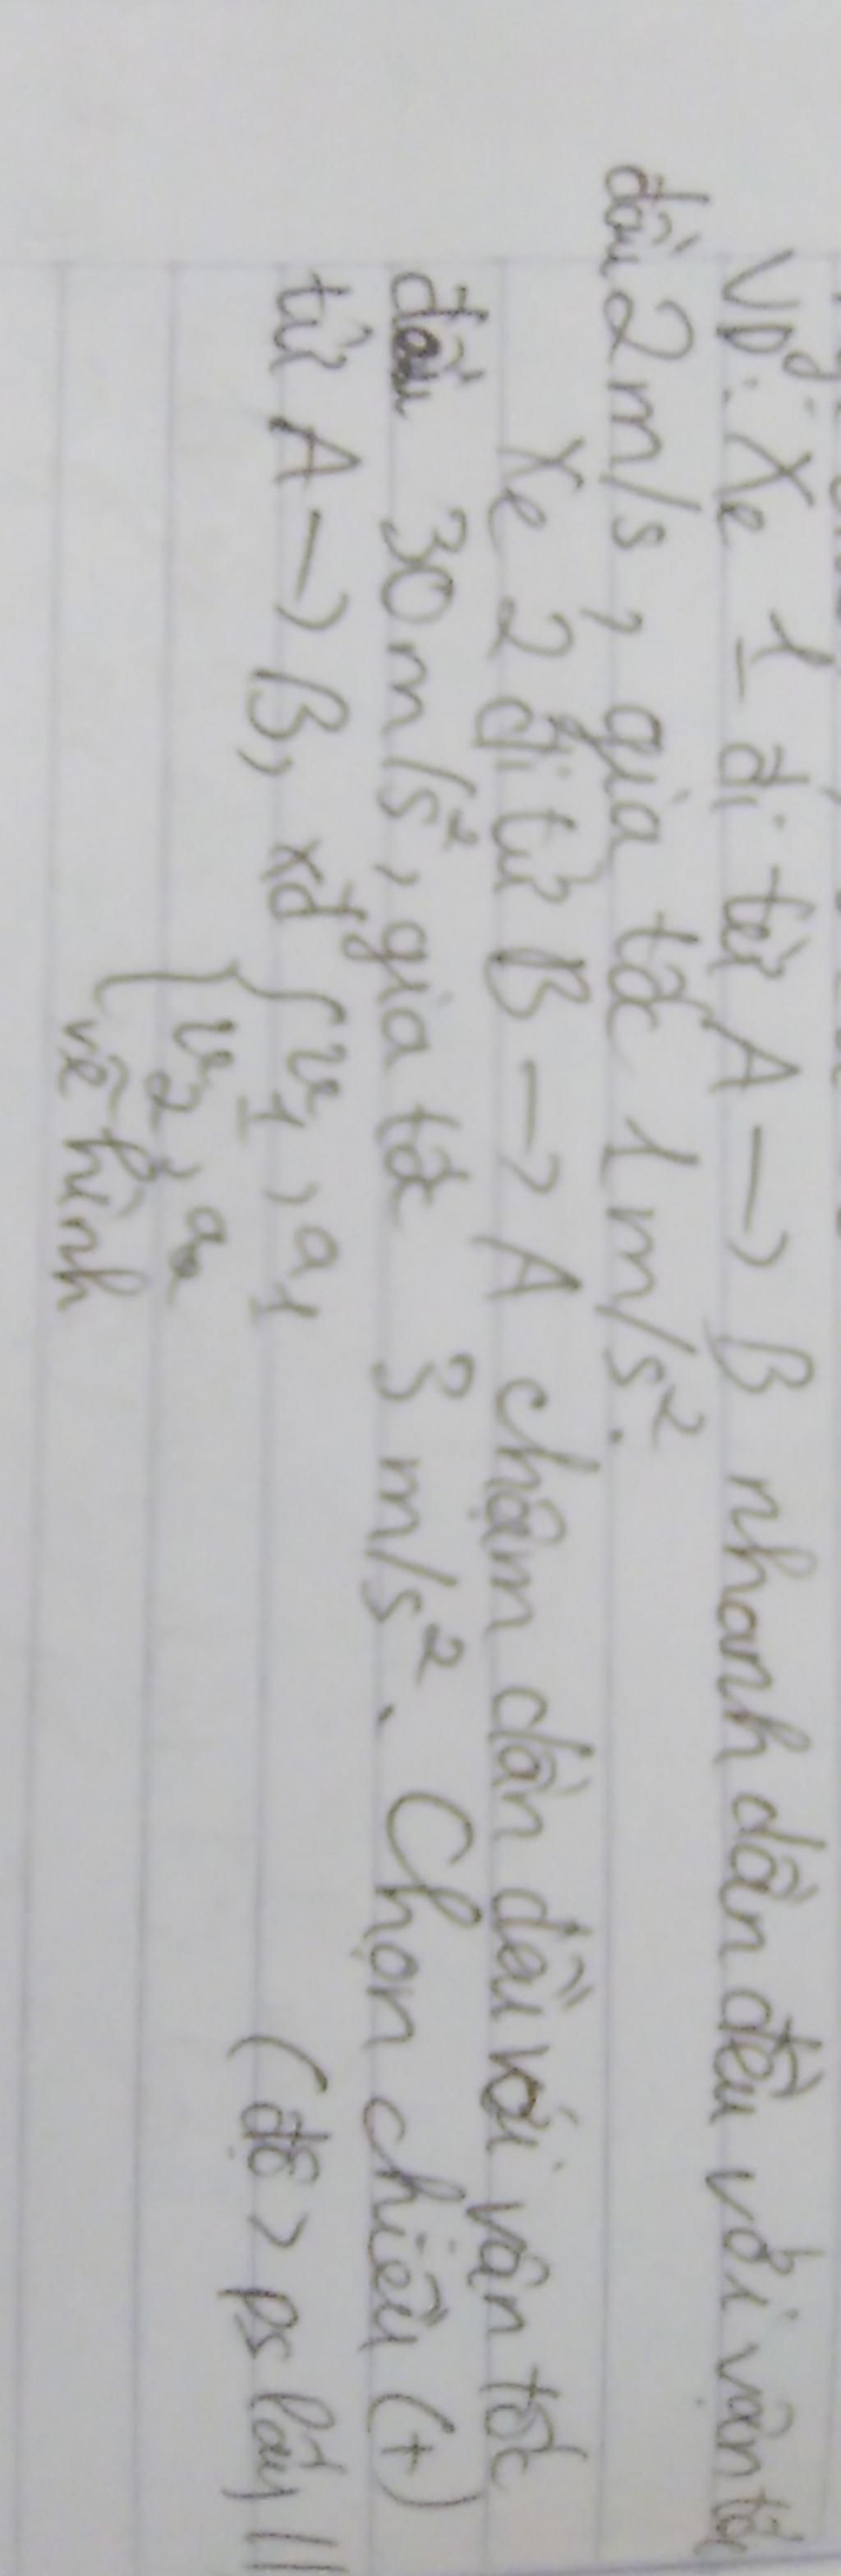 VD: Xe 1 đi từ A → B nhanh dần đều với vận tốc
đầu 2 m/s, gia tốc 1 m/s².
Xe 2 đi từ B → A chậm dần đều với vận tốc
đầu 30 m/s², gia tốc 3 m/s². Chọn chiều (+)
từ A → B, xđ { v₁, a₁ (độ > ps lấy ||
v₂, a₂
vẽ hình